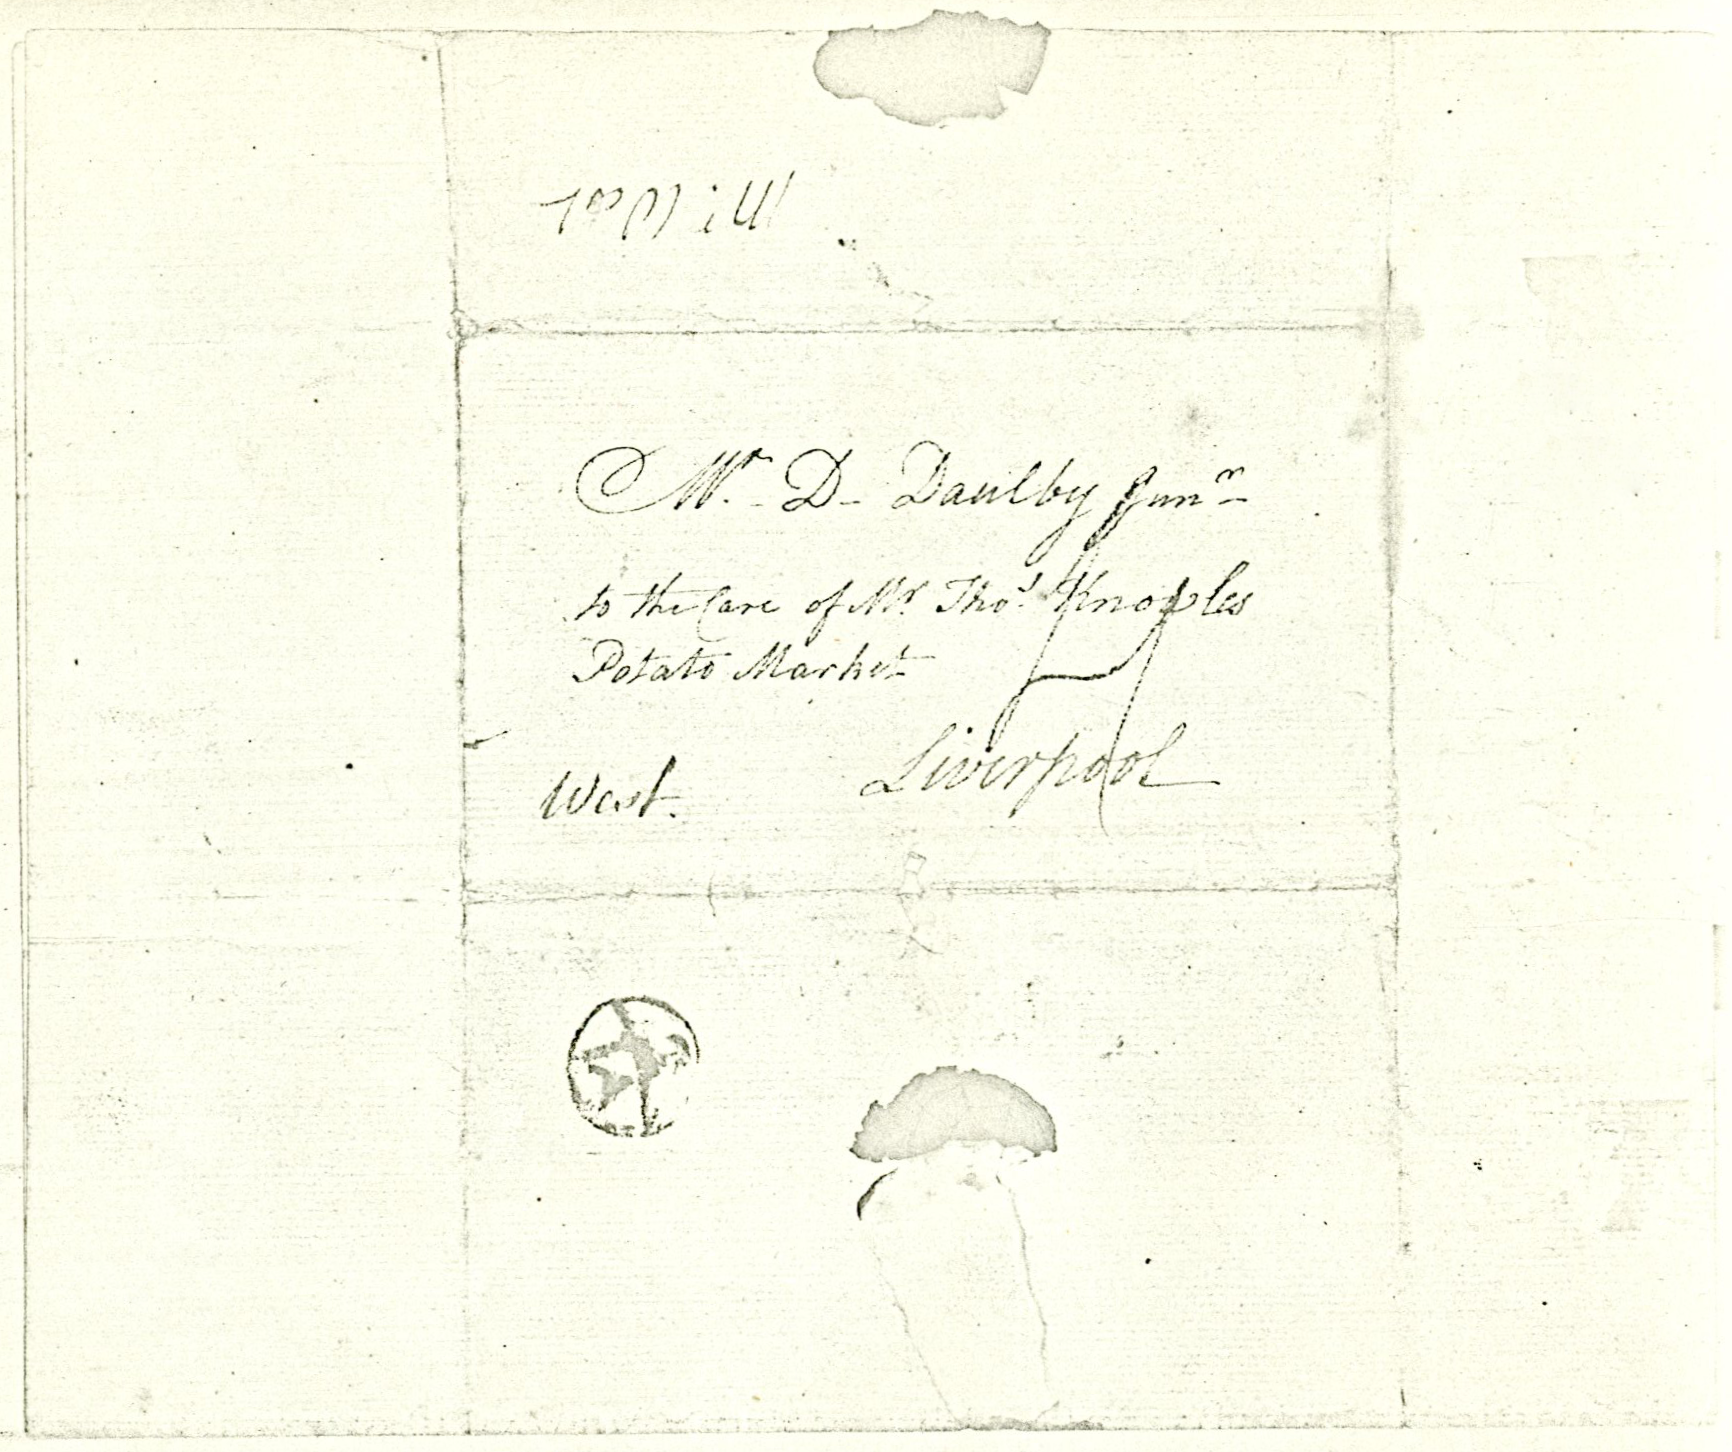 Mr. D- Daulby Junr
to the Care of Mr. Thos. Knowles
Potato Market
Liverpool
West.